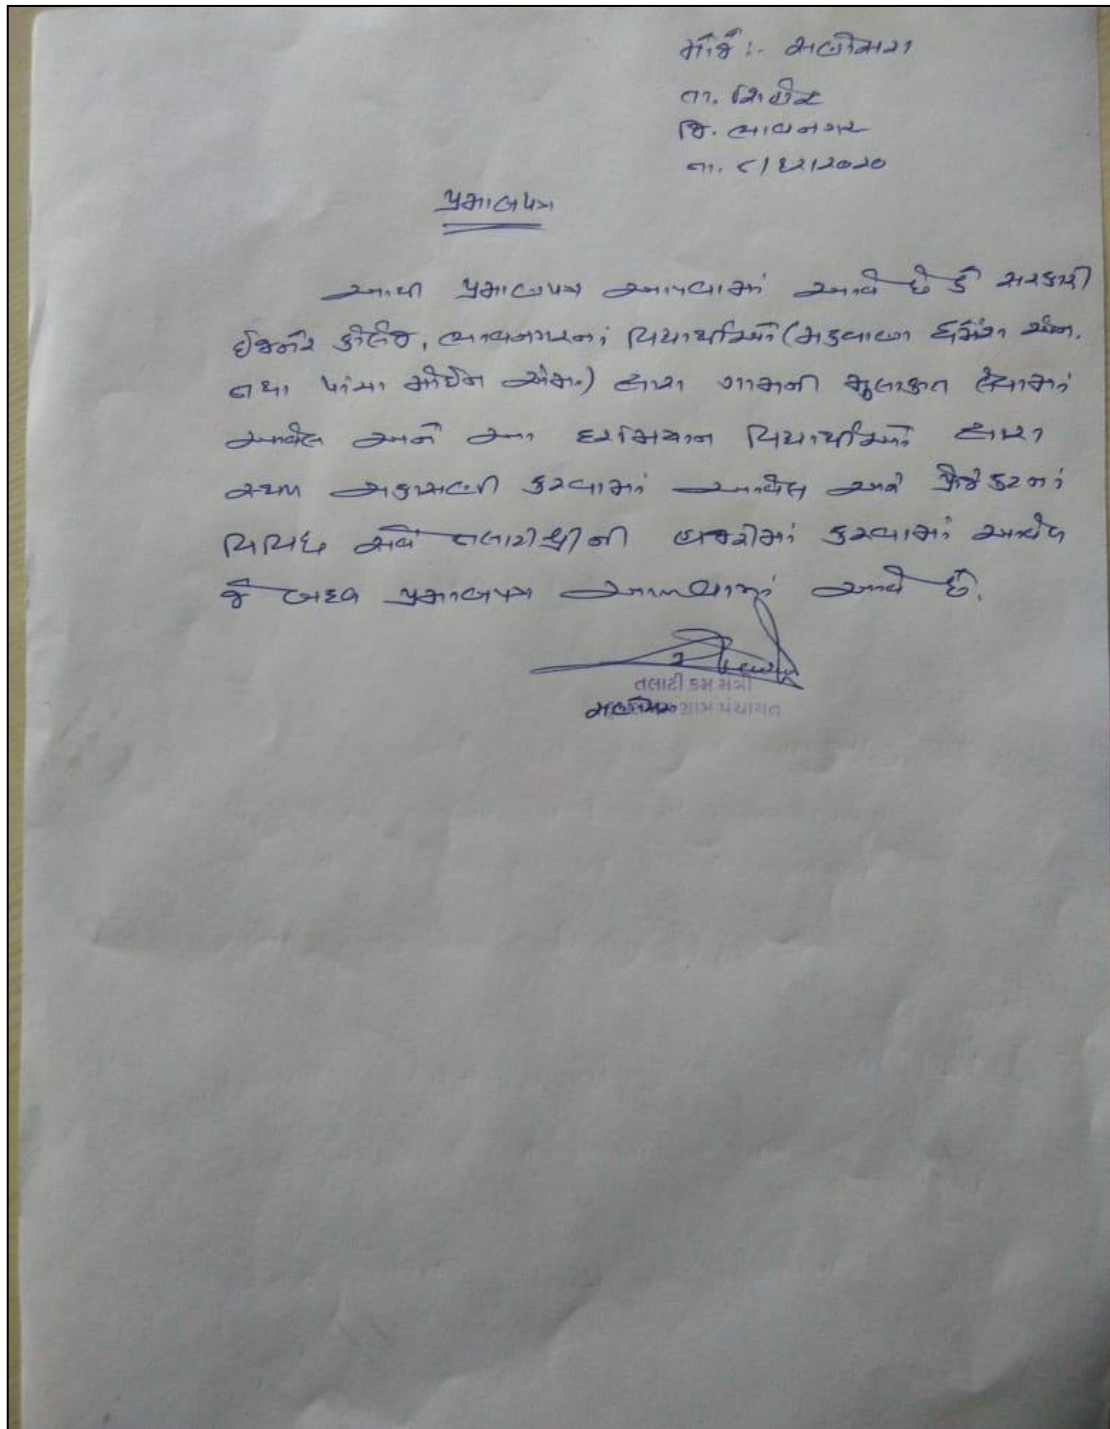 મોજે :- સણોસરા
તા. સિહોર
જિ. ભાવનગર
તા. ૮/૧૨/૨૦૨૦
પ્રમાણપત્ર
આથી પ્રમાણપત્ર આપવામાં આવે છે કે સરકારી
ઈજનેર કોલેજ, ભાવનગરનાં વિદ્યાર્થીઓ (મકવાણા એન.
તથા એમ.) દ્વારા ગામની મુલાકાત લેવામાં
આવેલ અને આ દરમિયાન વિદ્યાર્થીઓ દ્વારા
સ્થળ ચકાસણી કરવામાં આવેલ અને પ્રોજેકટનાં
વિવિધ સર્વે તલાટીશ્રીની હાજરીમાં કરવામાં આવેલ
જે બદલ પ્રમાણપત્ર આપવામાં આવે છે.
તલાટી કમ મંત્રી
સણોસરા ગ્રામ પંચાયત